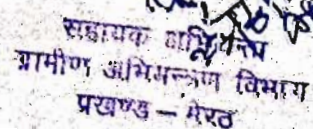 सहायक अभियन्ता
ग्रामीण अभियन्त्रण विभाग
प्रखण्ड – मेरठ